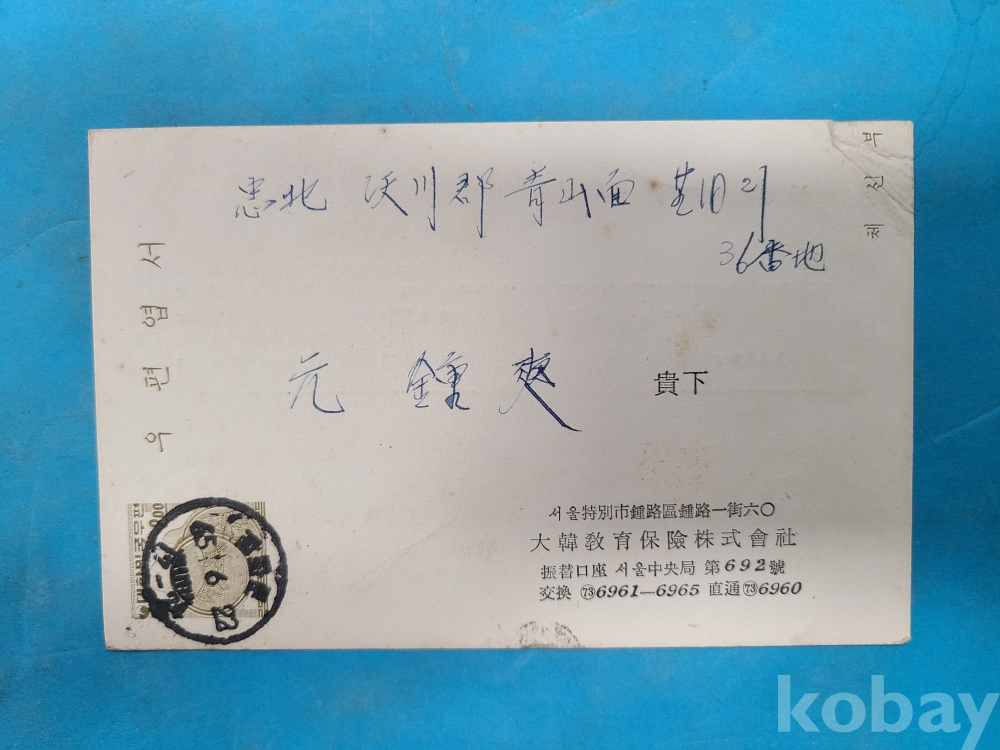 체신부
忠北 沃川郡 靑山面 基旧리
36番地
우편엽서
元 鍾爽 貴下
서울特別市鍾路區鍾路一街六〇
大韓敎育保險株式會社
振替口座 서울中央局 第692號
交換 ㉓6961—6965 直通㉓6960
65 6 22
kobay